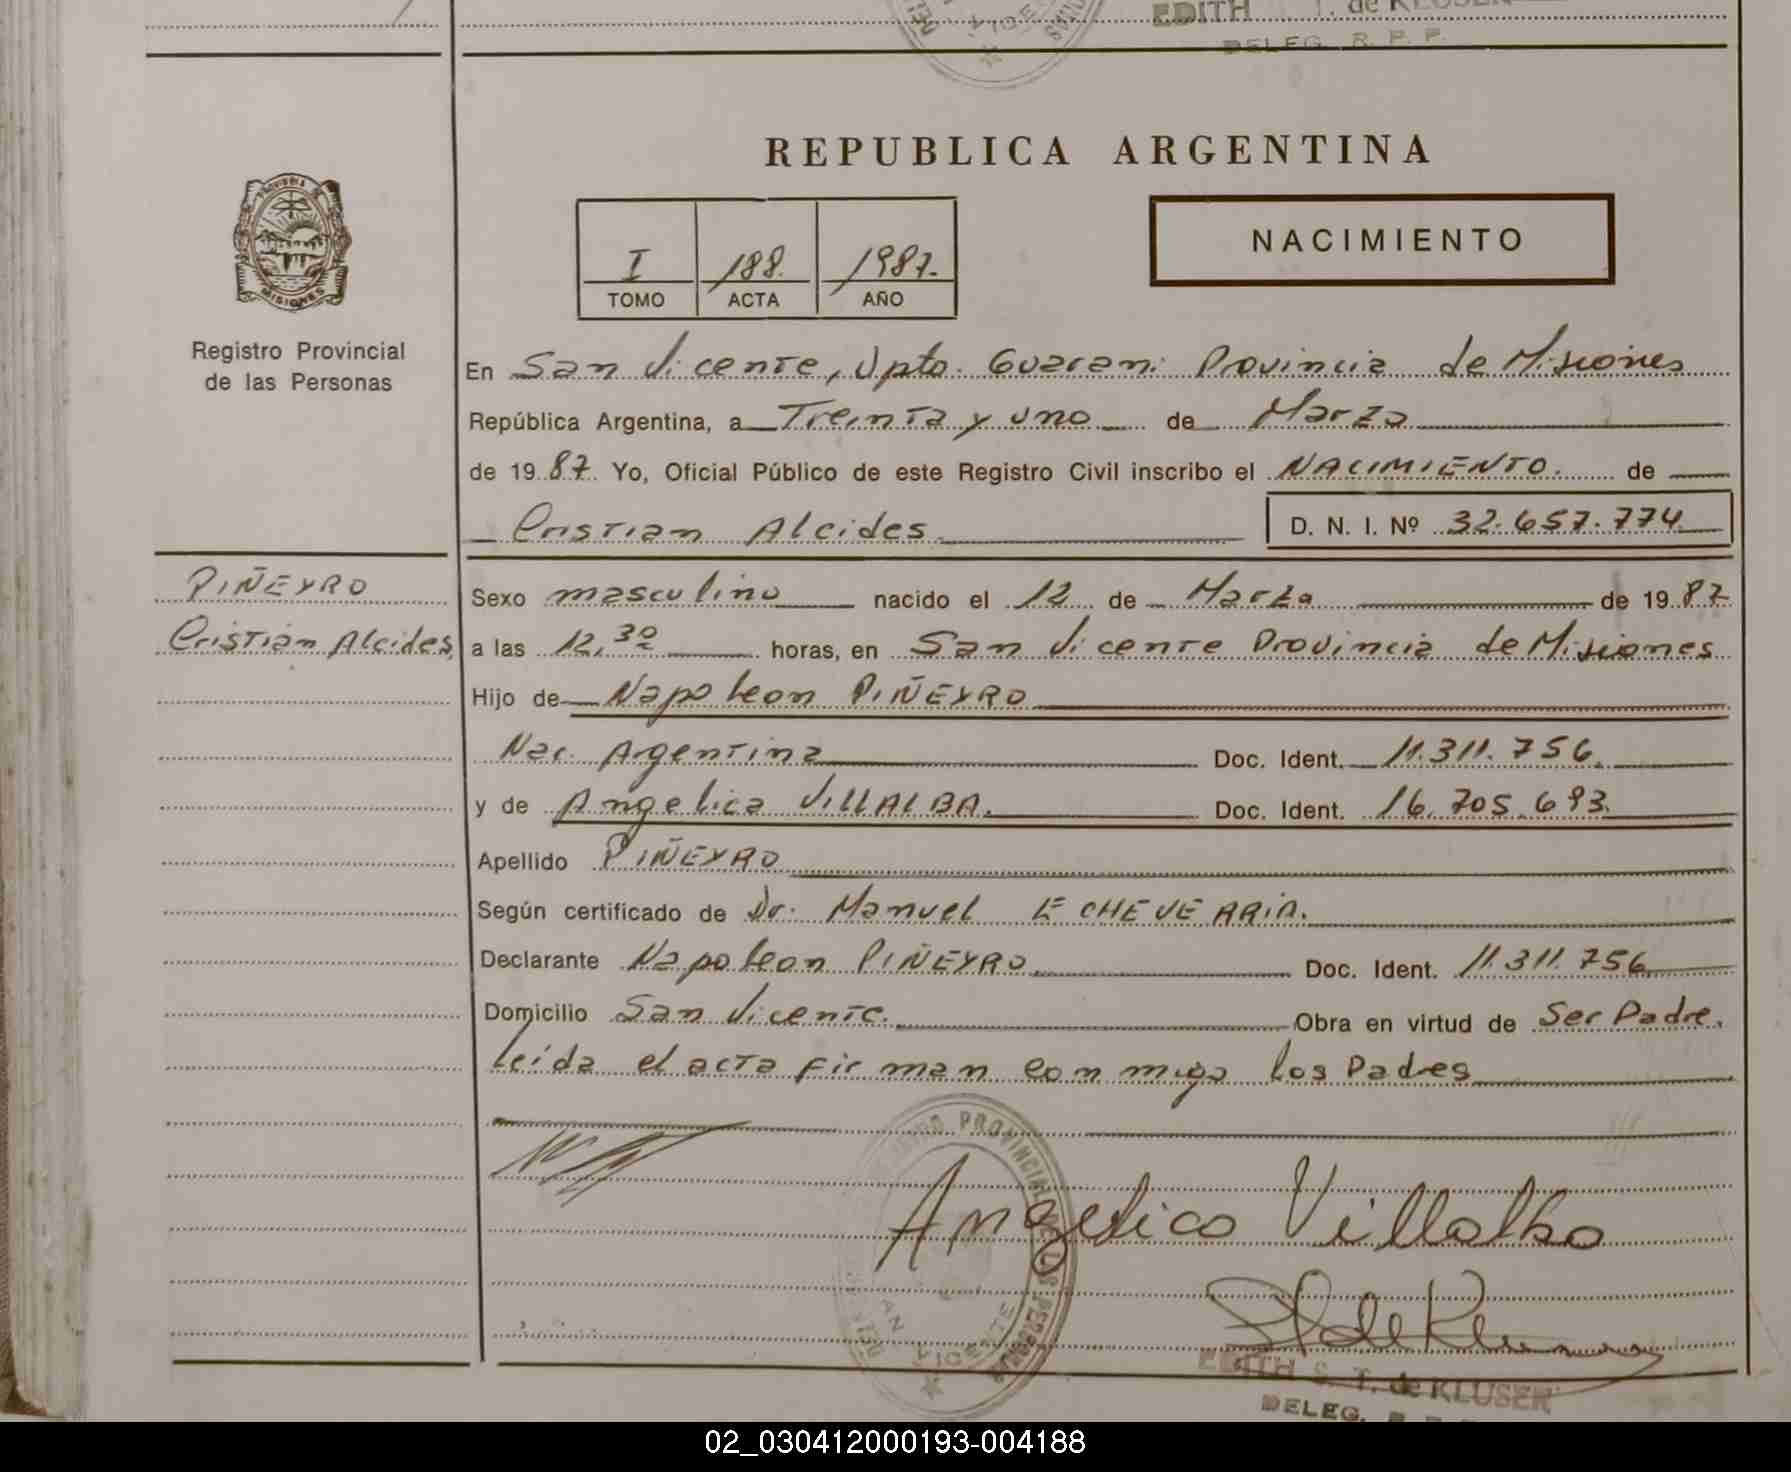 EDITH S. T. de KLUSER
DELEG. R. P. P.
REPUBLICA ARGENTINA
PROVINCIA DE
MISIONES
Registro Provincial
de las Personas
I 188. 1987.
TOMO ACTA AÑO
NACIMIENTO
En San Vicente, Dpto. Guarani Provincia de Misiones
República Argentina, a Treinta y uno de Marzo
de 1987. Yo, Oficial Público de este Registro Civil inscribo el NACIMIENTO. de
Cristian Alcides D. N. I. Nº 32.657.774
PIÑEYRO
Cristian Alcides
Sexo masculino nacido el 12 de Marzo de 1987
a las 12,30 horas, en San Vicente Provincia de Misiones
Hijo de Napoleon PIÑEYRO
Nac. Argentina Doc. Ident. 11.311.756.
y de Angelica VILLALBA. Doc. Ident. 16.705.693.
Apellido PIÑEYRO
Según certificado de Dr. Manuel ECHEVERRIA.
Declarante Napoleon PIÑEYRO Doc. Ident. 11.311.756
Domicilio San Vicente. Obra en virtud de Ser Padre.
leída el acta firman conmigo los Padres
Angelica Villalba
REGISTRO PROVINCIAL DE LAS PERSONAS
SAN VICENTE
EDITH S. T. de KLUSER
DELEG. R. P. P.
02_030412000193-004188